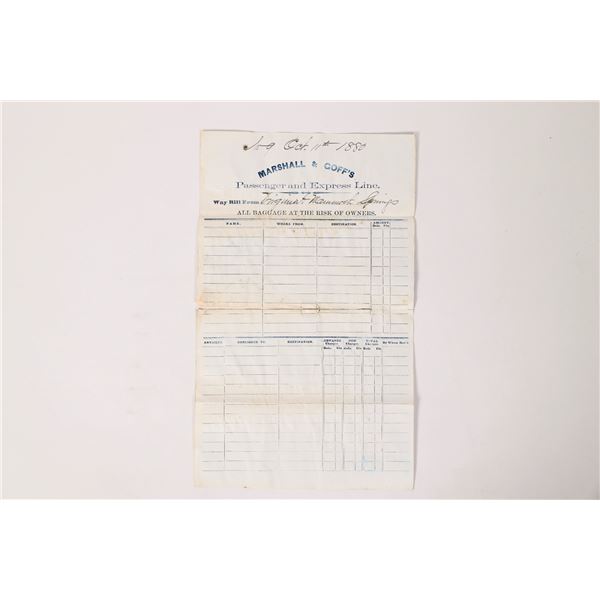 Oct. 11th 1880
MARSHALL & GOFF'S
Passenger and Express Line.
Way Bill From Virginia & Mammoth Springs
ALL BAGUAGE AT THE RISK OF OWNERS.
NAME. WHERE FROM. DESTINATION. AMOUNT.
Dols. Cts.
ARTICLES. CONSIGNED TO. DESTINATION. ADVANCE Charges. OUR Charges. TOTAL Charges. By Whom Rec'd.
Dols. Cts. Dols. Cts. Dols. Cts.